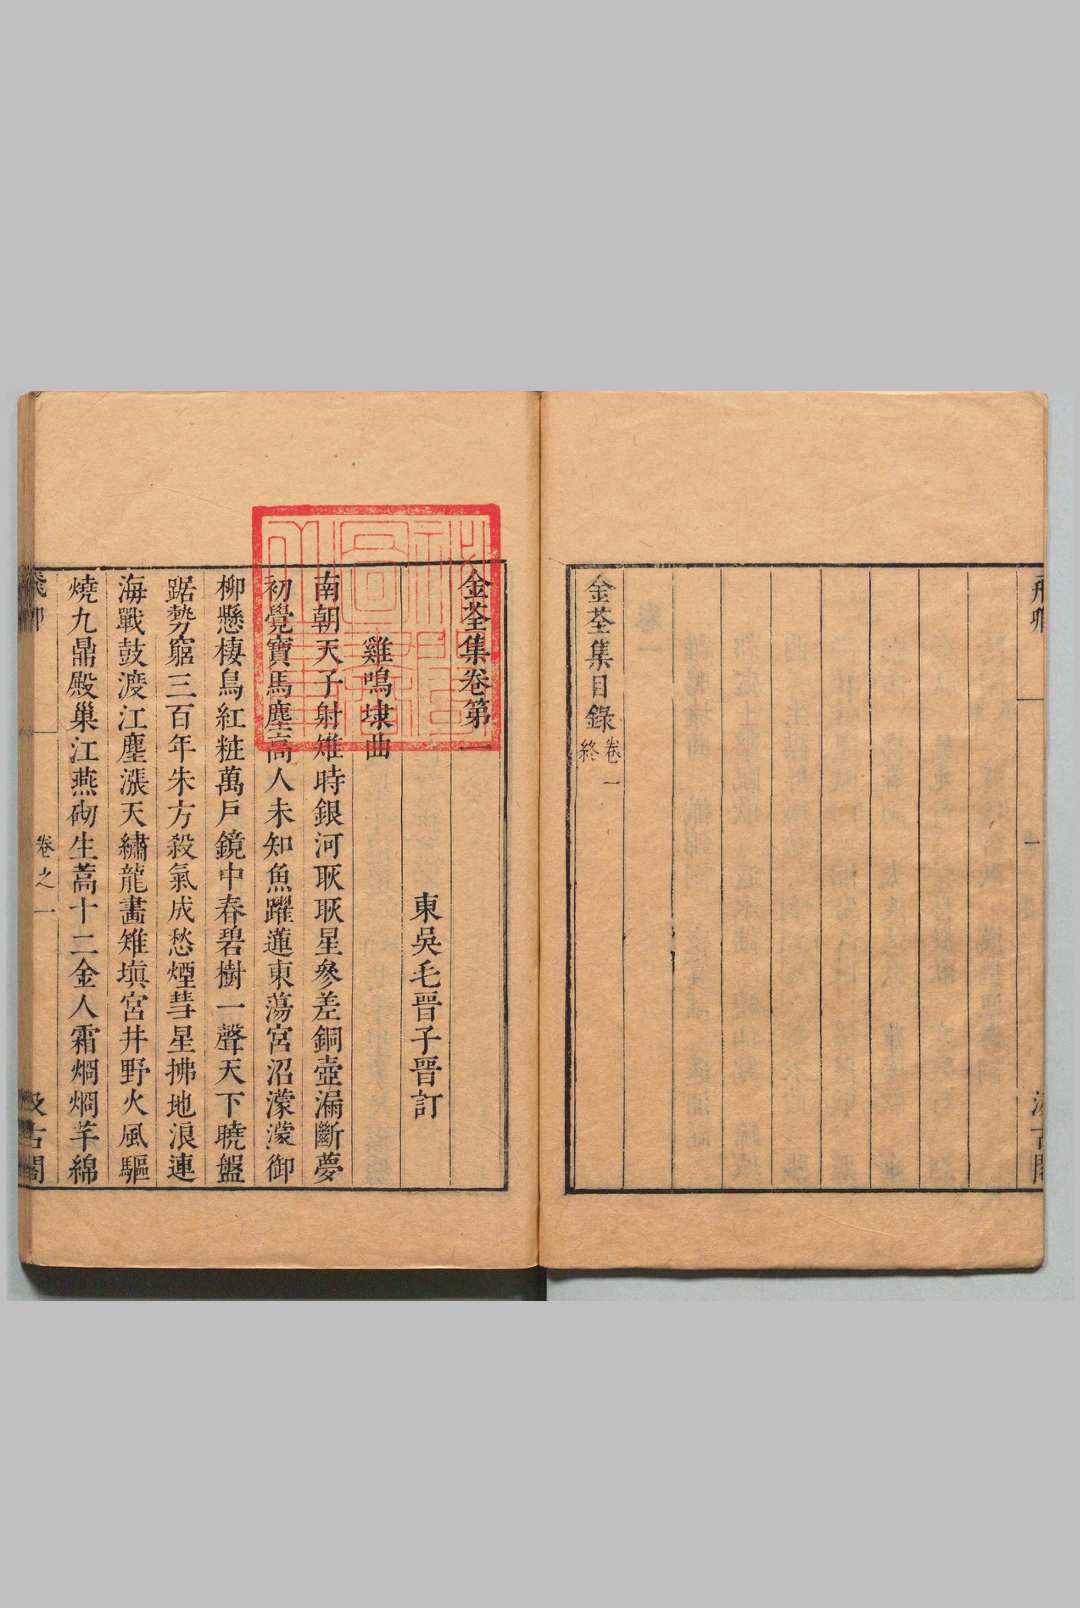 金荃集目錄卷一終
金荃集卷第一
東吳毛晉子晉訂
雞鳴埭曲
南朝天子射雉時銀河耿耿星參差銅壺漏斷夢
初覺寶馬塵高人未知魚躍蓮東蕩宮沼濛濛御
柳懸棲鳥紅粧萬戶鏡中春碧樹一聲天下曉盤
踞勢窮三百年朱方殺氣成愁煙彗星拂地浪連
海戰鼓渡江塵漲天繡龍畫雉塡宮井野火風驅
燒九鼎殿巢江燕砌生蒿十二金人霜烱烱芊綿
卷之一